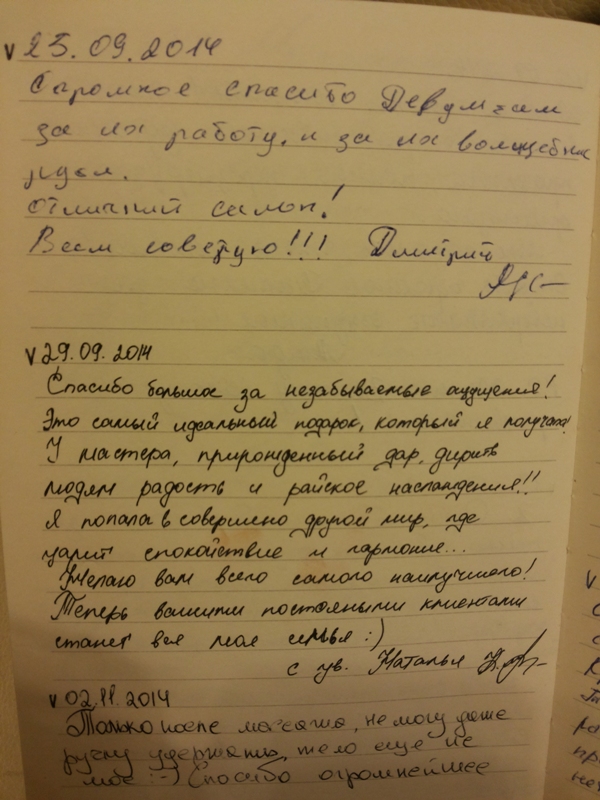 v 25.09.2014
Огромное спасибо Девушкам
за их работу, и за их волшебные
руки.
отличный салон!
Всем советую!!! Дмитрий
v 29.09.2014
Спасибо большое за незабываемые ощущения!
Это самый идеальный подарок, который я получала!
У мастера, прирожденный дар, дарить
людям радость и райское наслаждения!!
Я попала в совершено другой мир, где
царит спокойствие и гармония...
Желаю вам всего самого наилучшего!
Теперь вашими постояными клиентами
станет вся моя семья :)
с ув. Наталья
v 02.11.2014
Только после массажа, не могу даже
ручку удержать, тело еще не
мое :-) Спасибо огромнейшее